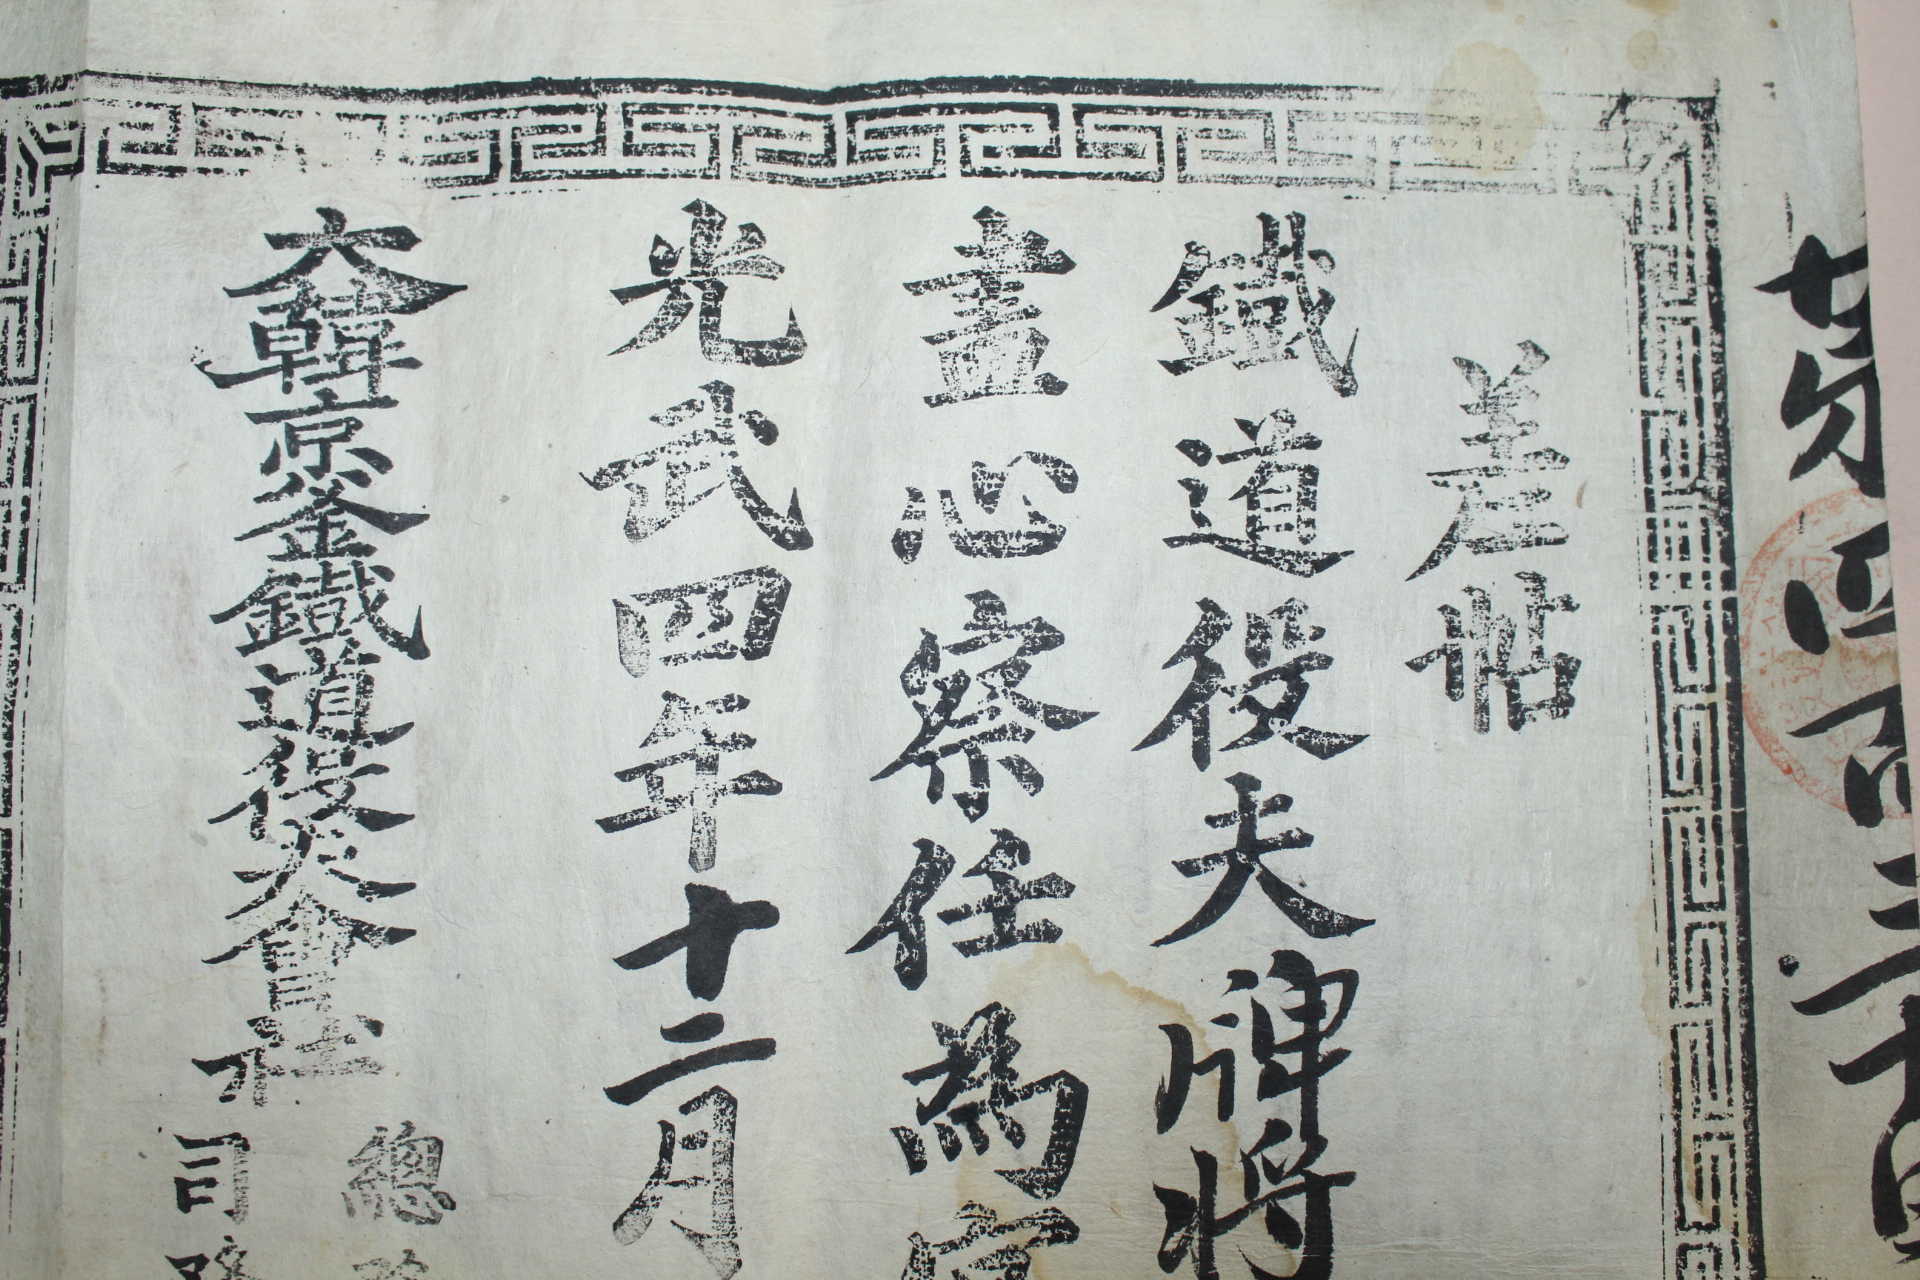 第四百三十
差帖
鐵道役夫牌將
盡心察任爲宜
光武四年十二月
大韓京釜鐵道役夫會社
總務
司務